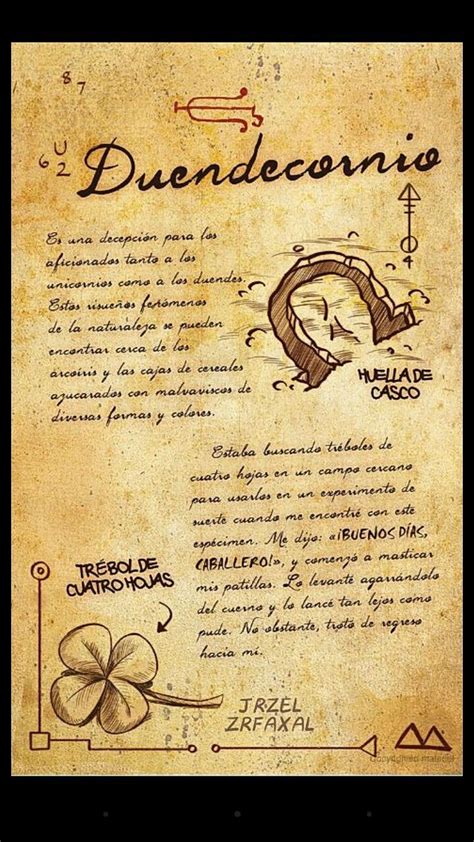 8 7
6 U 2
Duendecornio
4
Es una decepción para los
aficionados tanto a los
unicornios como a los duendes.
Estos risueños fenómenos
de la naturaleza se pueden
encontrar cerca de los
arcoíris y las cajas de cereales
azucarados con malvaviscos de
diversas formas y colores.
HUELLA DE
CASCO
Estaba buscando tréboles de
cuatro hojas en un campo cercano
para usarlos en un experimento de
suerte cuando me encontré con este
espécimen. Me dijo: «¡BUENOS DÍAS,
CABALLERO!», y comenzó a masticar
mis patillas. Lo levanté agarrándolo
del cuerno y lo lancé tan lejos como
pude. No obstante, trotó de regreso
hacia mí.
TRÉBOL DE
CUATRO HOJAS
JRZEL
ZRFAXAL